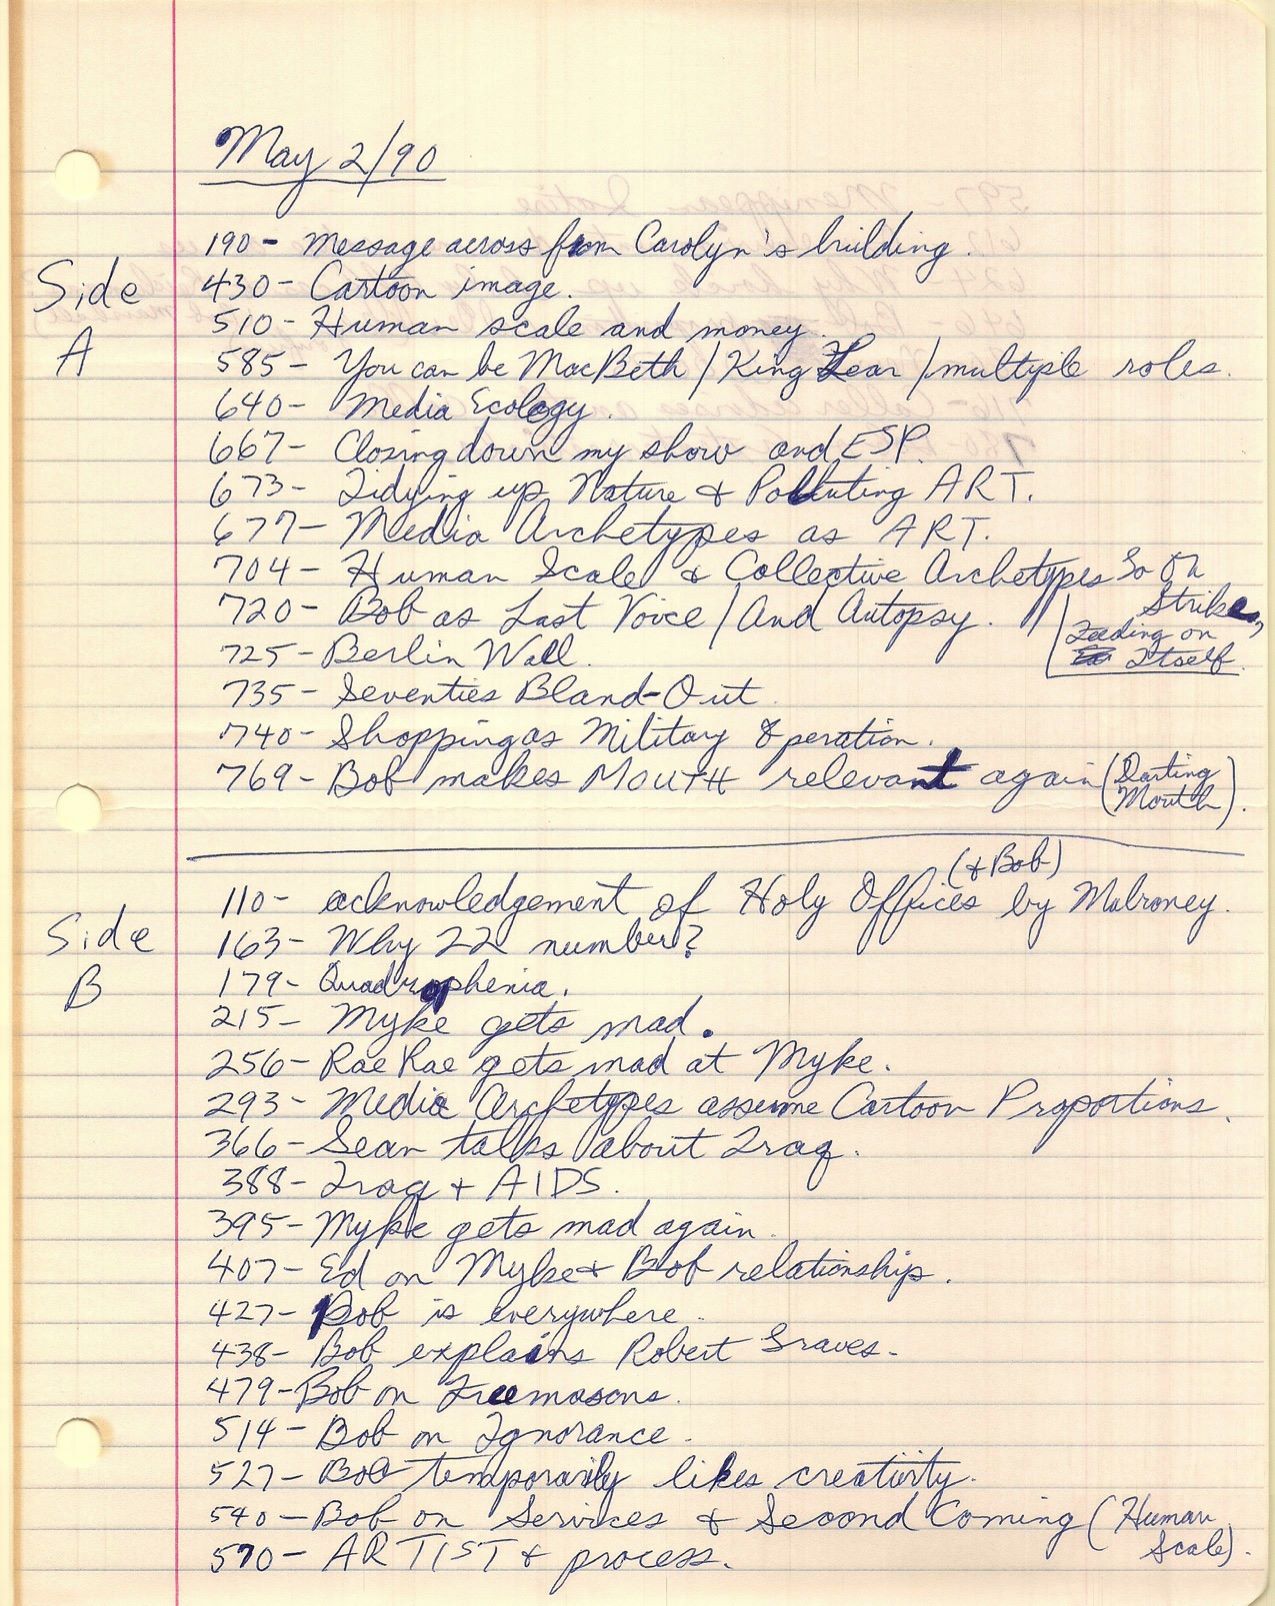 May 2/90
Side
A
190- Message across from Carolyn's building.
430- Cartoon image.
510- Human scale and money.
585- You can be MacBeth / King Lear / multiple roles.
640- Media Ecology.
667- Closing down my show and ESP.
673- Tidying up Nature & Polluting ART.
677- Media Archetypes as ART.
704- Human Scale & Collective Archetypes Go On Strike,
Feeding on
Itself.
720- Bob as Last Voice / And Autopsy.
725- Berlin Wall.
735- Seventies Bland-Out
740- Shopping as Military Operation.
769- Bob makes MOUTH relevant again (Darting Mouth).
Side
B
110- acknowledgement of Holy Offices (& Bob) by Mulroney.
163- Why 22 number?
179- Quadrophenia.
215- Myke gets mad.
256- Rae Rae gets mad at Myke.
293- Media Archetypes assume Cartoon Proportions.
366- Sean talks about Iraq.
388- Iraq + AIDS.
395- Myke gets mad again.
407- Ed on Myke & Bob relationship.
427- Bob is everywhere.
438- Bob explains Robert Graves-
479- Bob on Freemasons.
514- Bob on Ignorance-
527- Bob temporarily likes creativity.
540- Bob on Services & Second Coming (Human Scale).
570- ARTIST & process.